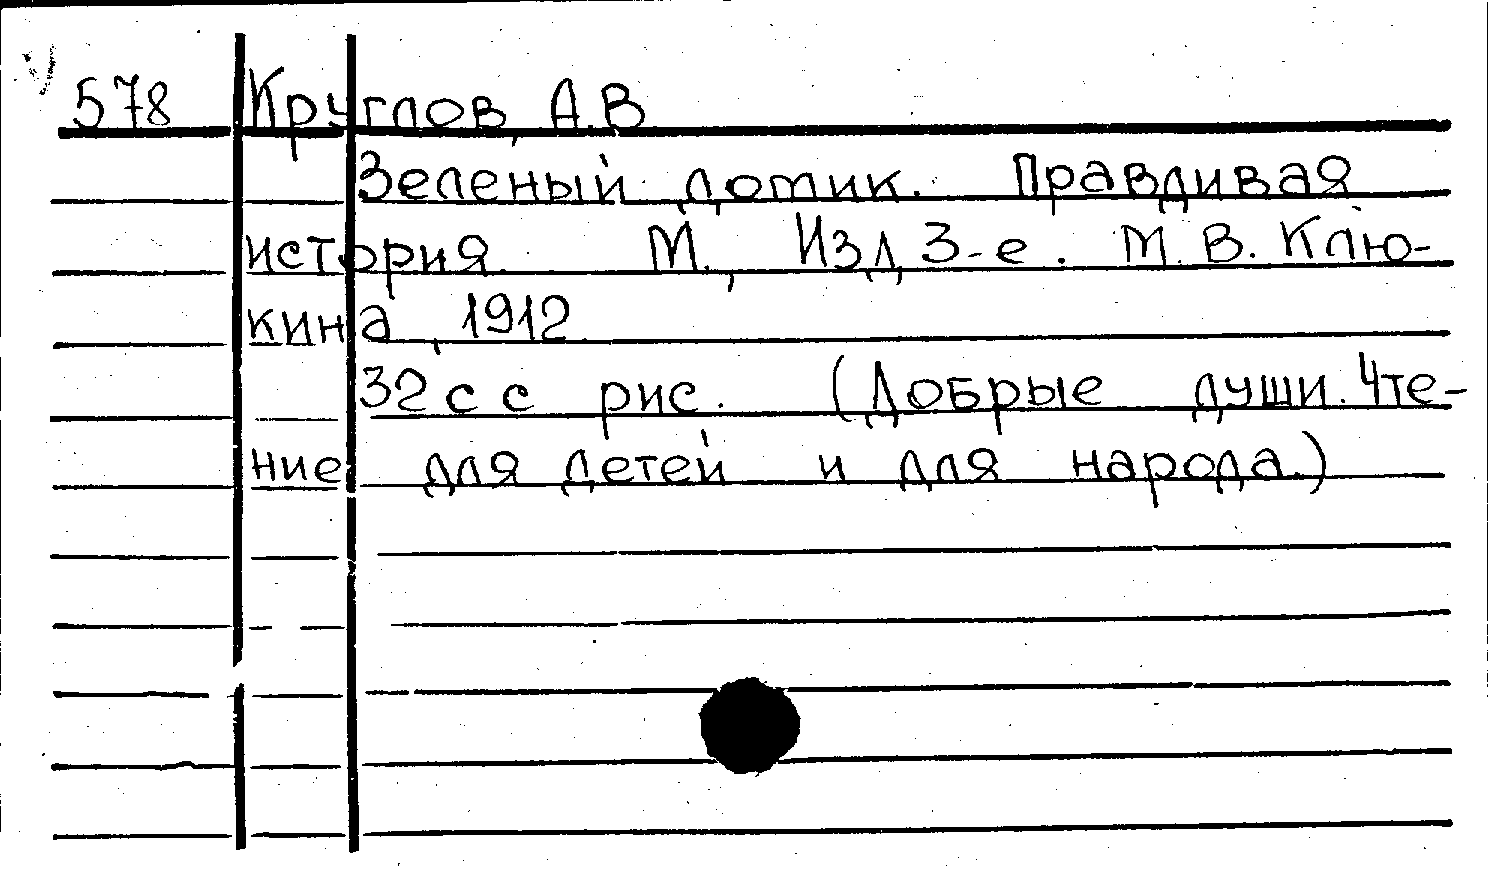 578 Круглов, А.В
Зеленый домик. Правдивая
история. М., Изд. 3-е. М.В. Клю-
кина, 1912
32 с с рис. (Добрые души. Чте-
ние для детей и для народа.)